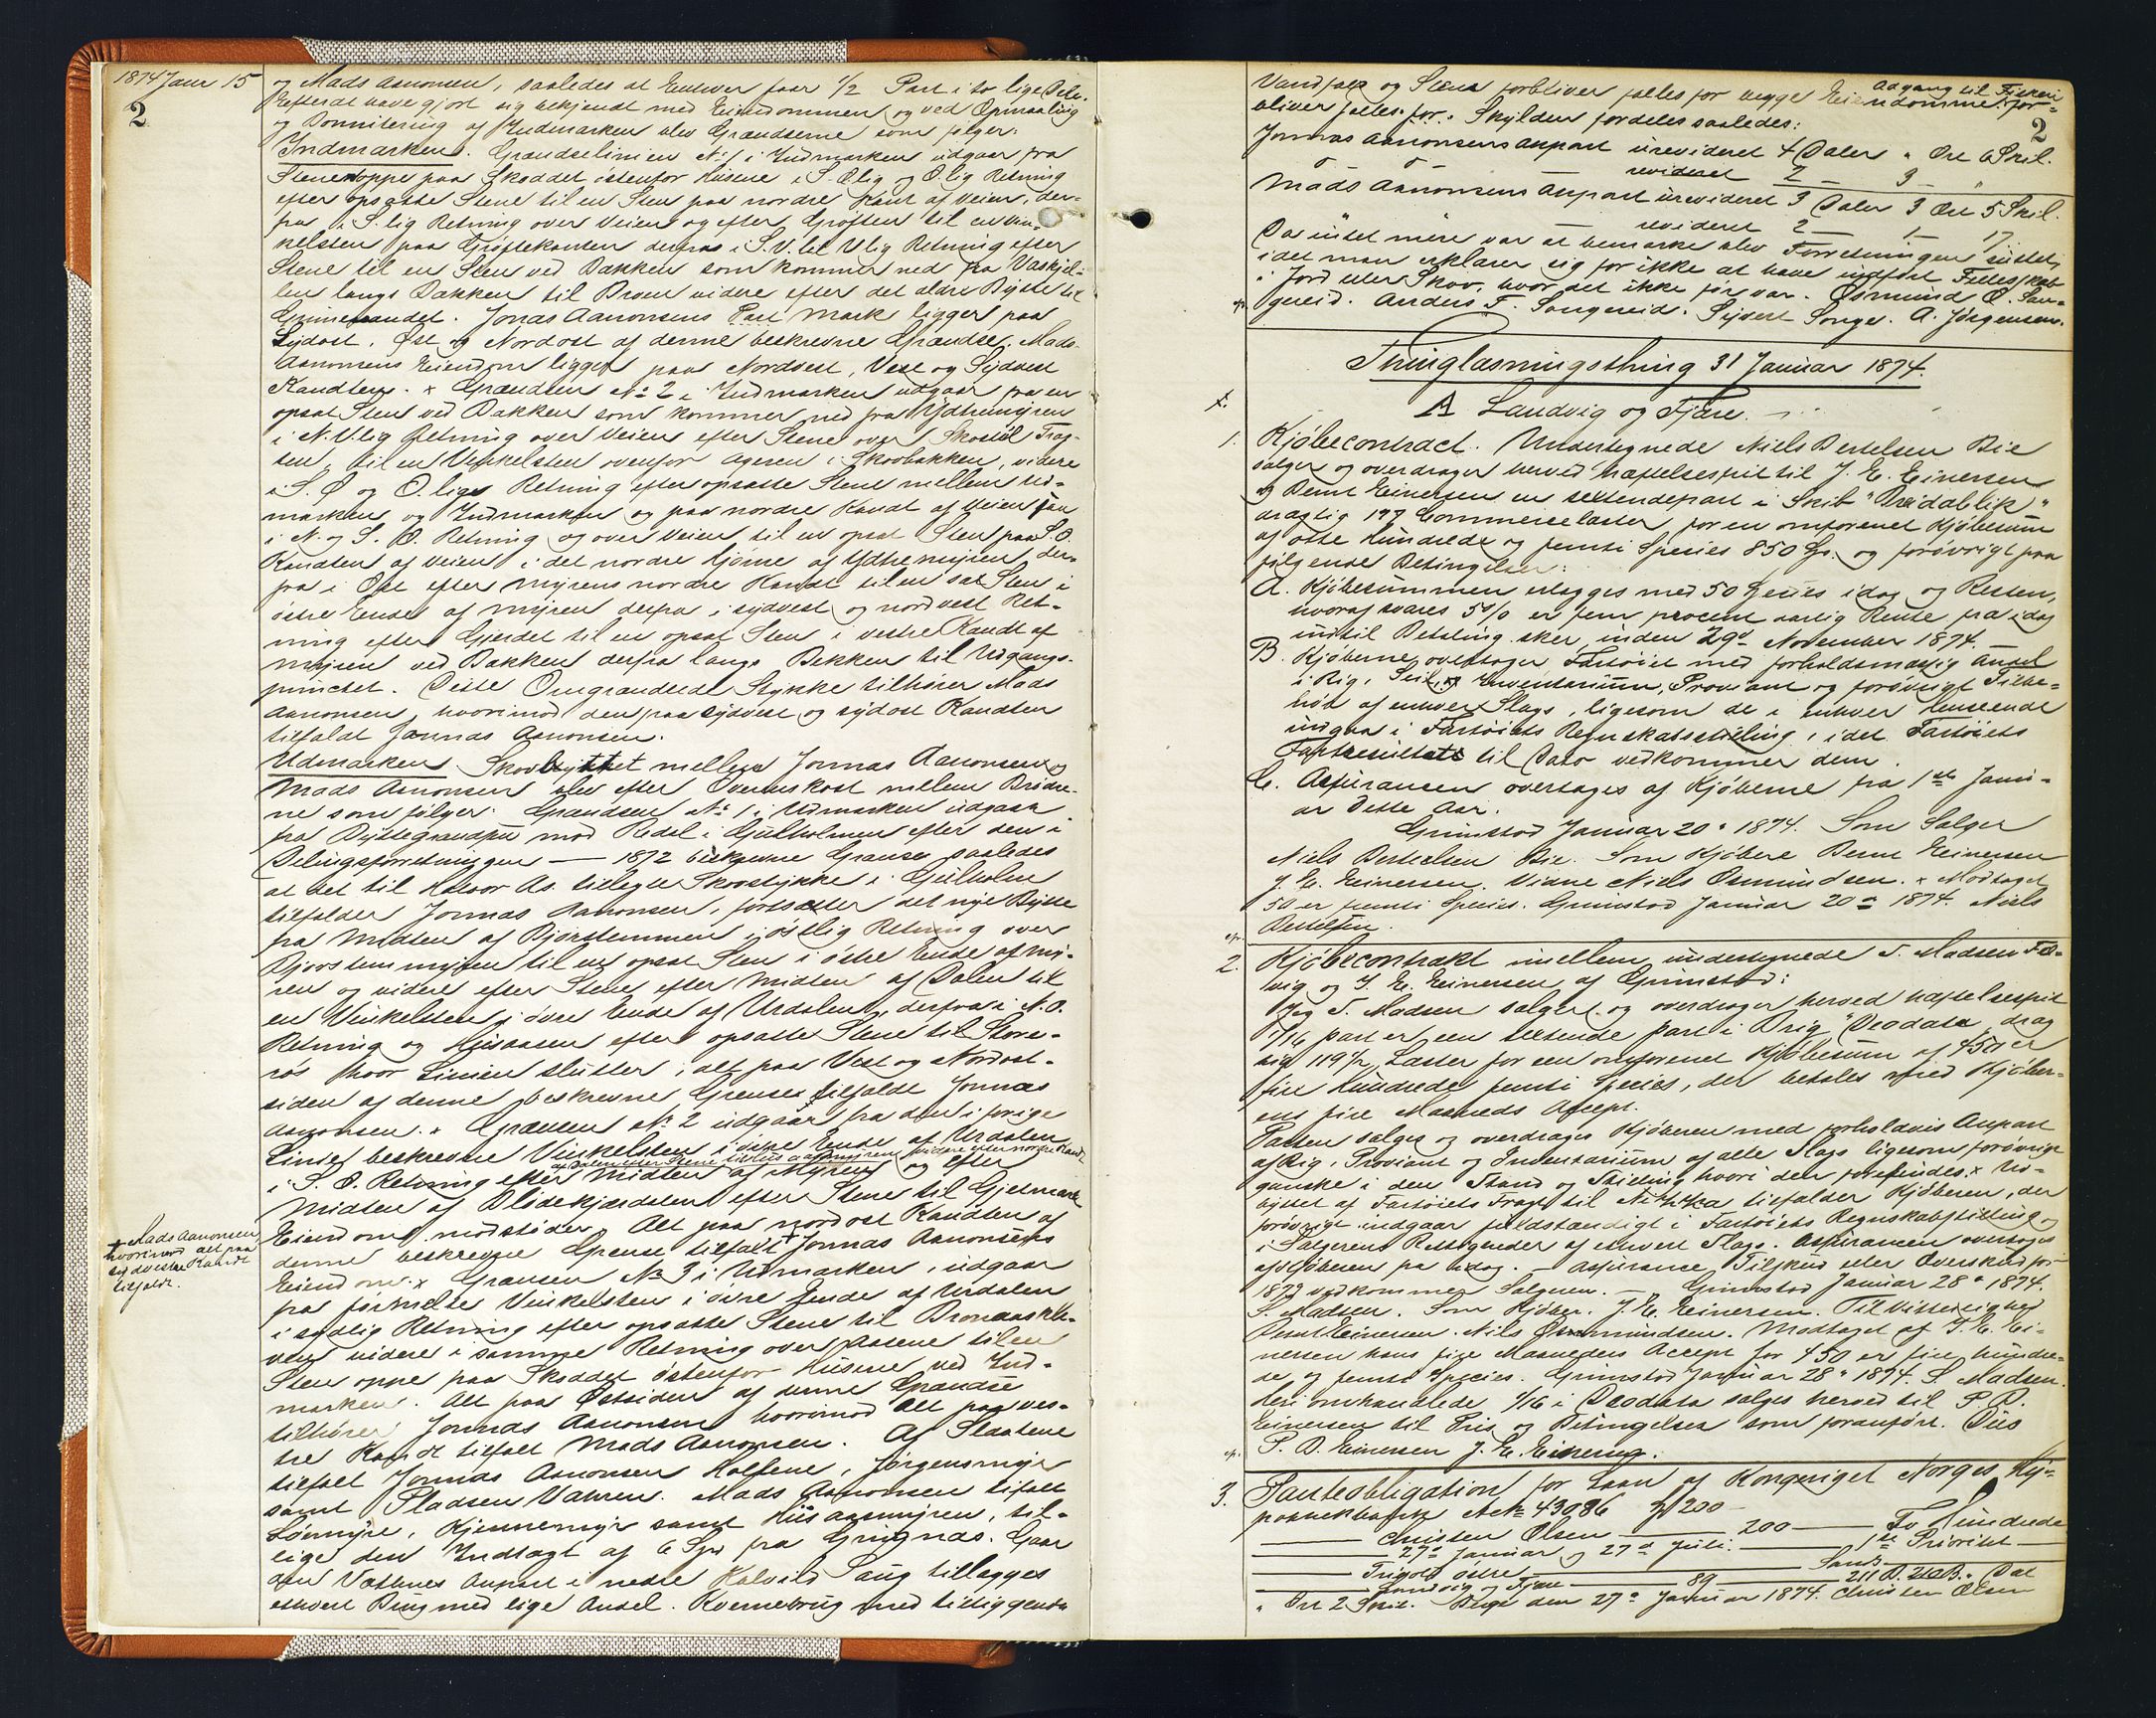 1874 Janr 15
2
og Mads Aanonsen, saaledes at Enhver faar 1/2 Part i to lige Dele.
Efterat have gjort sig bekjendt med Eiendommen og ved Opmaaling
og Bonnitering af Indmarken blev Grændserne som følger:
Indmarken. Grændselinien No 1 i Indmarken udgaar fra
Stenen oppe paa Skoddet østenfor Husene i S. Ølig og Ølig Retning
efter opsatte Stene til en Sten paa nordre Kant af Veien, der-
fra i S. lig Retning over Veien og efter Grøften til en Vin-
kelsten paa Grøftekanten derfra i S.V. til Vlig Retning efter
Stene til en Sten ved Bakken som kommer ned fra Vaskjel-
len langs Bakken til Broen videre efter det ældre Bytte til
Jonas Aanonsens Part Mark ligger paa
Sydost, Øst og Nordost af denne beskrevne Grændse. Mads
Aanonsens Eiendom ligger paa Nordvest, Vest og Sydvest
Kandten. x Grændsen No 2 i Indmarken udgaar fra en
opsat Sten ved Bakken som kommer ned fra Ydtremyren
i N. Vlig Retning over Veien efter Stene over Skostøl
til en Vinkelsten ovenfor Ageren i Skovbakken, videre
i S. Ø og Ø. lige Retning efter opsatte Stene mellem Ud-
marken og Indmarken og paa nordre Kandt af Veien
i N. og S. Ø. Retning og over Veien til en opsat Sten paa S.Ø.
Kandten af Veien i det nordre Hjørne af Ydtremyren der-
fra i Øst efter Myrens nordre Kandt til en sat Sten i
østre Ende af Myren derfra i sydvest og nordvest Ret-
ning efter Gjerdet til en opsat Sten i vestre Kandt af
Myren ved Bakken derfra langs Bekken til Udgangs-
punctet. Dette Omgrændsede Stykke tilhører Mads
Aanonsen, hvorimod den paa sydvest og sydost Kandten
tilfaldt Jonnas Aanonsen.
Udmarken. Skovbyttet mellem Jonnas Aanonsen og
Mads Aanonsen blev efter Overenskost mellem Brødre-
ne som følger: Grændsen No 1 i Udmarken udgaar
fra Byttegrændsen mod Rødal i Gulholmen efter den i
Delingsforretningen — 1872 beskrevne Grænse saaledes
at det til Halvor As. tillagte Skovstykke i Gulholm
tilfalder Jonnas Aanonsen, fortsætter det nye Bytte
fra Midten af Bjørstemmen i østlig Retning over
Bjorstemmyren til en opsat Sten i østre Ende af My-
ren og videre efter Stene efter Midten af Dalen til
en Vinkelsten i øvre Ende af Urdalen, derfra i N. O.
Retning og Husaasen efter opsatte Stene til Store-
røs hvor Linien slutter, alt paa Vest og Nordost-
siden af denne beskrevne Grænse tilfaldt Jonnas
Aanonsen. x Grændsen No 2 udgaar fra den i forige
Linie beskrevne Vinkelsten i øvre Ende af Urdalen
i S. Ø. Retning efter Midten af Myren og efter
Midten af Blidekjærdalen efter Stene til Gjetmark
Eiendom modstøder, Alt paa nordost Kandten af
denne beskrevne Grense tilfalt + Jonnas Aanonsens
Eiendom. x Grænsen No 3 i Udmarken, udgaar
fra førnævnte Vinkelsten i øvre Ende af Urdalen
i sydlig Retning efter opsatte Stene til Bronaaskle-
ven videre i samme Retning over Aasene til en
Sten oppe paa Skoddet østenfor Husene ved Ind-
marken. Alt paa Østsiden af denne Grændse
tilhører Jonnas Aanonsen hvorimod Alt paa ves-
tre Kandt tilfalt Mads Aanonsen. Af Slaatene
tilfalt Jonnas Aanonsen Kalfene, Jørgensmyr
samt Pladsen Vahren. Mads Aanonsen tilfalt
Lønmyre, Kjennemyr samt Husaasmyren, til-
lige den Indtægt af 6 Spd fra Grugnæs. Gaar
den Vatnes Anpart i nedre Kalvild Saug tillægges
ethvert Brug med lige Andel. Kvernebrug med tilliggende
+ Mads Aanonsen,
hvorimod alt paa
sydvestre Kandt
tilfaldt.
Vandfald og Stena forbliver fælles for begge Eiendomme. for-
Adgang til Fiskeri
bliver fælles for. Skylden fordeles saaledes:
2
Jonnas Aanonsens Anpart urevideret 4 Daler " Ort 6 Skil.
revideret 2 — 3 — "
Mads Aanonsens Anpart urevideret 3 Daler 3 Ort 5 Skil.
revideret 2 — 1 — 17
Da intet mere var at bemærke blev Forretningen sluttet,
idet man erklærer sig for ikke at have indført Fællesskab
i Jord eller Skov, hvor det ikke før var. Osmund O. Son-
gereid. Anders F. Songereid. Sivert Songe. A. Jørgensen.
Thinglæsningsthing 31 Januar 1874.
A Landvig og Fjære.
1. Kjøbecontract. Undertegnede Niels Bertelsen Bie
sælger og overdrager herved hæftelsesfrit til J. E. Einersen
og Bernt Einersen en sextendepart i Skib "Breidablik"
drægtig 197 Commercelæster, for en omforenet Kjøbesum
af otte Hundrede og femti Species 850 Sp. og forøvrigt paa
følgende Betingelser:
A. Kjøbesummen erlægges med 50 Species idag og Resten,
hvoraf svares 5% er fem procent aarlig Rente fra idag
indtil Betaling sker, inden 29de November 1874.
B. Kjøberne overtager Fartøiet med forholdsmæssig Andel
i Rig, Seil, og Inventarium, Proviant og forøvrigt Tilbe-
hør af enhver Slags, ligesom de i enhver Henseende
indgaa i Fartøiets Regnskabsstilling, idet Fartøiets
Fartsresultate til Dato vedkommer dem.
C. Assurancen overtages af Kjøberne fra 1ste Janu-
ar dette Aar.
Grimstad Januar 20 " 1874. Som Sælger
Niels Bertelsen Bie. Som Kjøbere Bernt Einersen
J. E. Einersen. Vidne Niels Osmundsen. x Modtaget
50 er femti Species. Grimstad Januar 20 " 1874. Niels
Bertelsen.
2. Kjøbecontrakt imellem undertegnede S. Madsen Fe-
vig og J. E. Einersen af Grimstad:
Jeg S. Madsen sælger og overdrager herved hæftelsesfrit
1/16 part er een sextende part i Brig "Deodata" dræg
tig 119 1/2 Læster for een omforenet Kjøbesum af 450 er
fire Hundrede femti Species, der betales med Kjøber-
ens fire Maaneds Accept.
Parten sælges og overdrages Kjøberen med forholdsvis Anpart
af Rig, Proviant og Inventarium af alle Slags ligesom forøvrigt
ganske i den Stand og Stilling hvori den forefindes. x Ud-
byttet af Fartøiets Fragt til tilfalder Kjøberen, der
forøvrigt indgaar fuldstændigt i Fartøiets Regnskabstilling og
i Sælgerens Rettigheder af ethvert Slags. Assurancen overtages
af Kjøberen fra idag. — Assurance Tilskud eller Overskud for
1873 vedkommer Sælgeren. — Grimstad Januar 28 " 1874.
S. Madsen. Som Kjøber. J. E. Einersen. Til Vitterlighed
Bernt Einersen. Nils Osmundsen. Modtaget af J. E. Ei-
nersen hans fire Maaneders Accept for 450 er fire hundre-
de og femti Species. Grimstad Januar 28 " 1874. S Madsen.
Heri omhandlede 1/16 i Deodata sælges herved til P. B.
Einersen til Pris og Betingelser som foranført. Dto
P. B. Einersen J. E. Einersen.
3. Panteobligation for Laan af Kongeriget Norges Hy-
pothekbank Act No 43086 200
Christen Olsen — 200 — To Hundrede
27de Januar og 27de Juli. — 1ste Prioritet —
østre —
Landvig og Fjære — 89 — 211 B. Dal
" Ort 2 Skil. den 27de Januar 1874. Christen Olsen